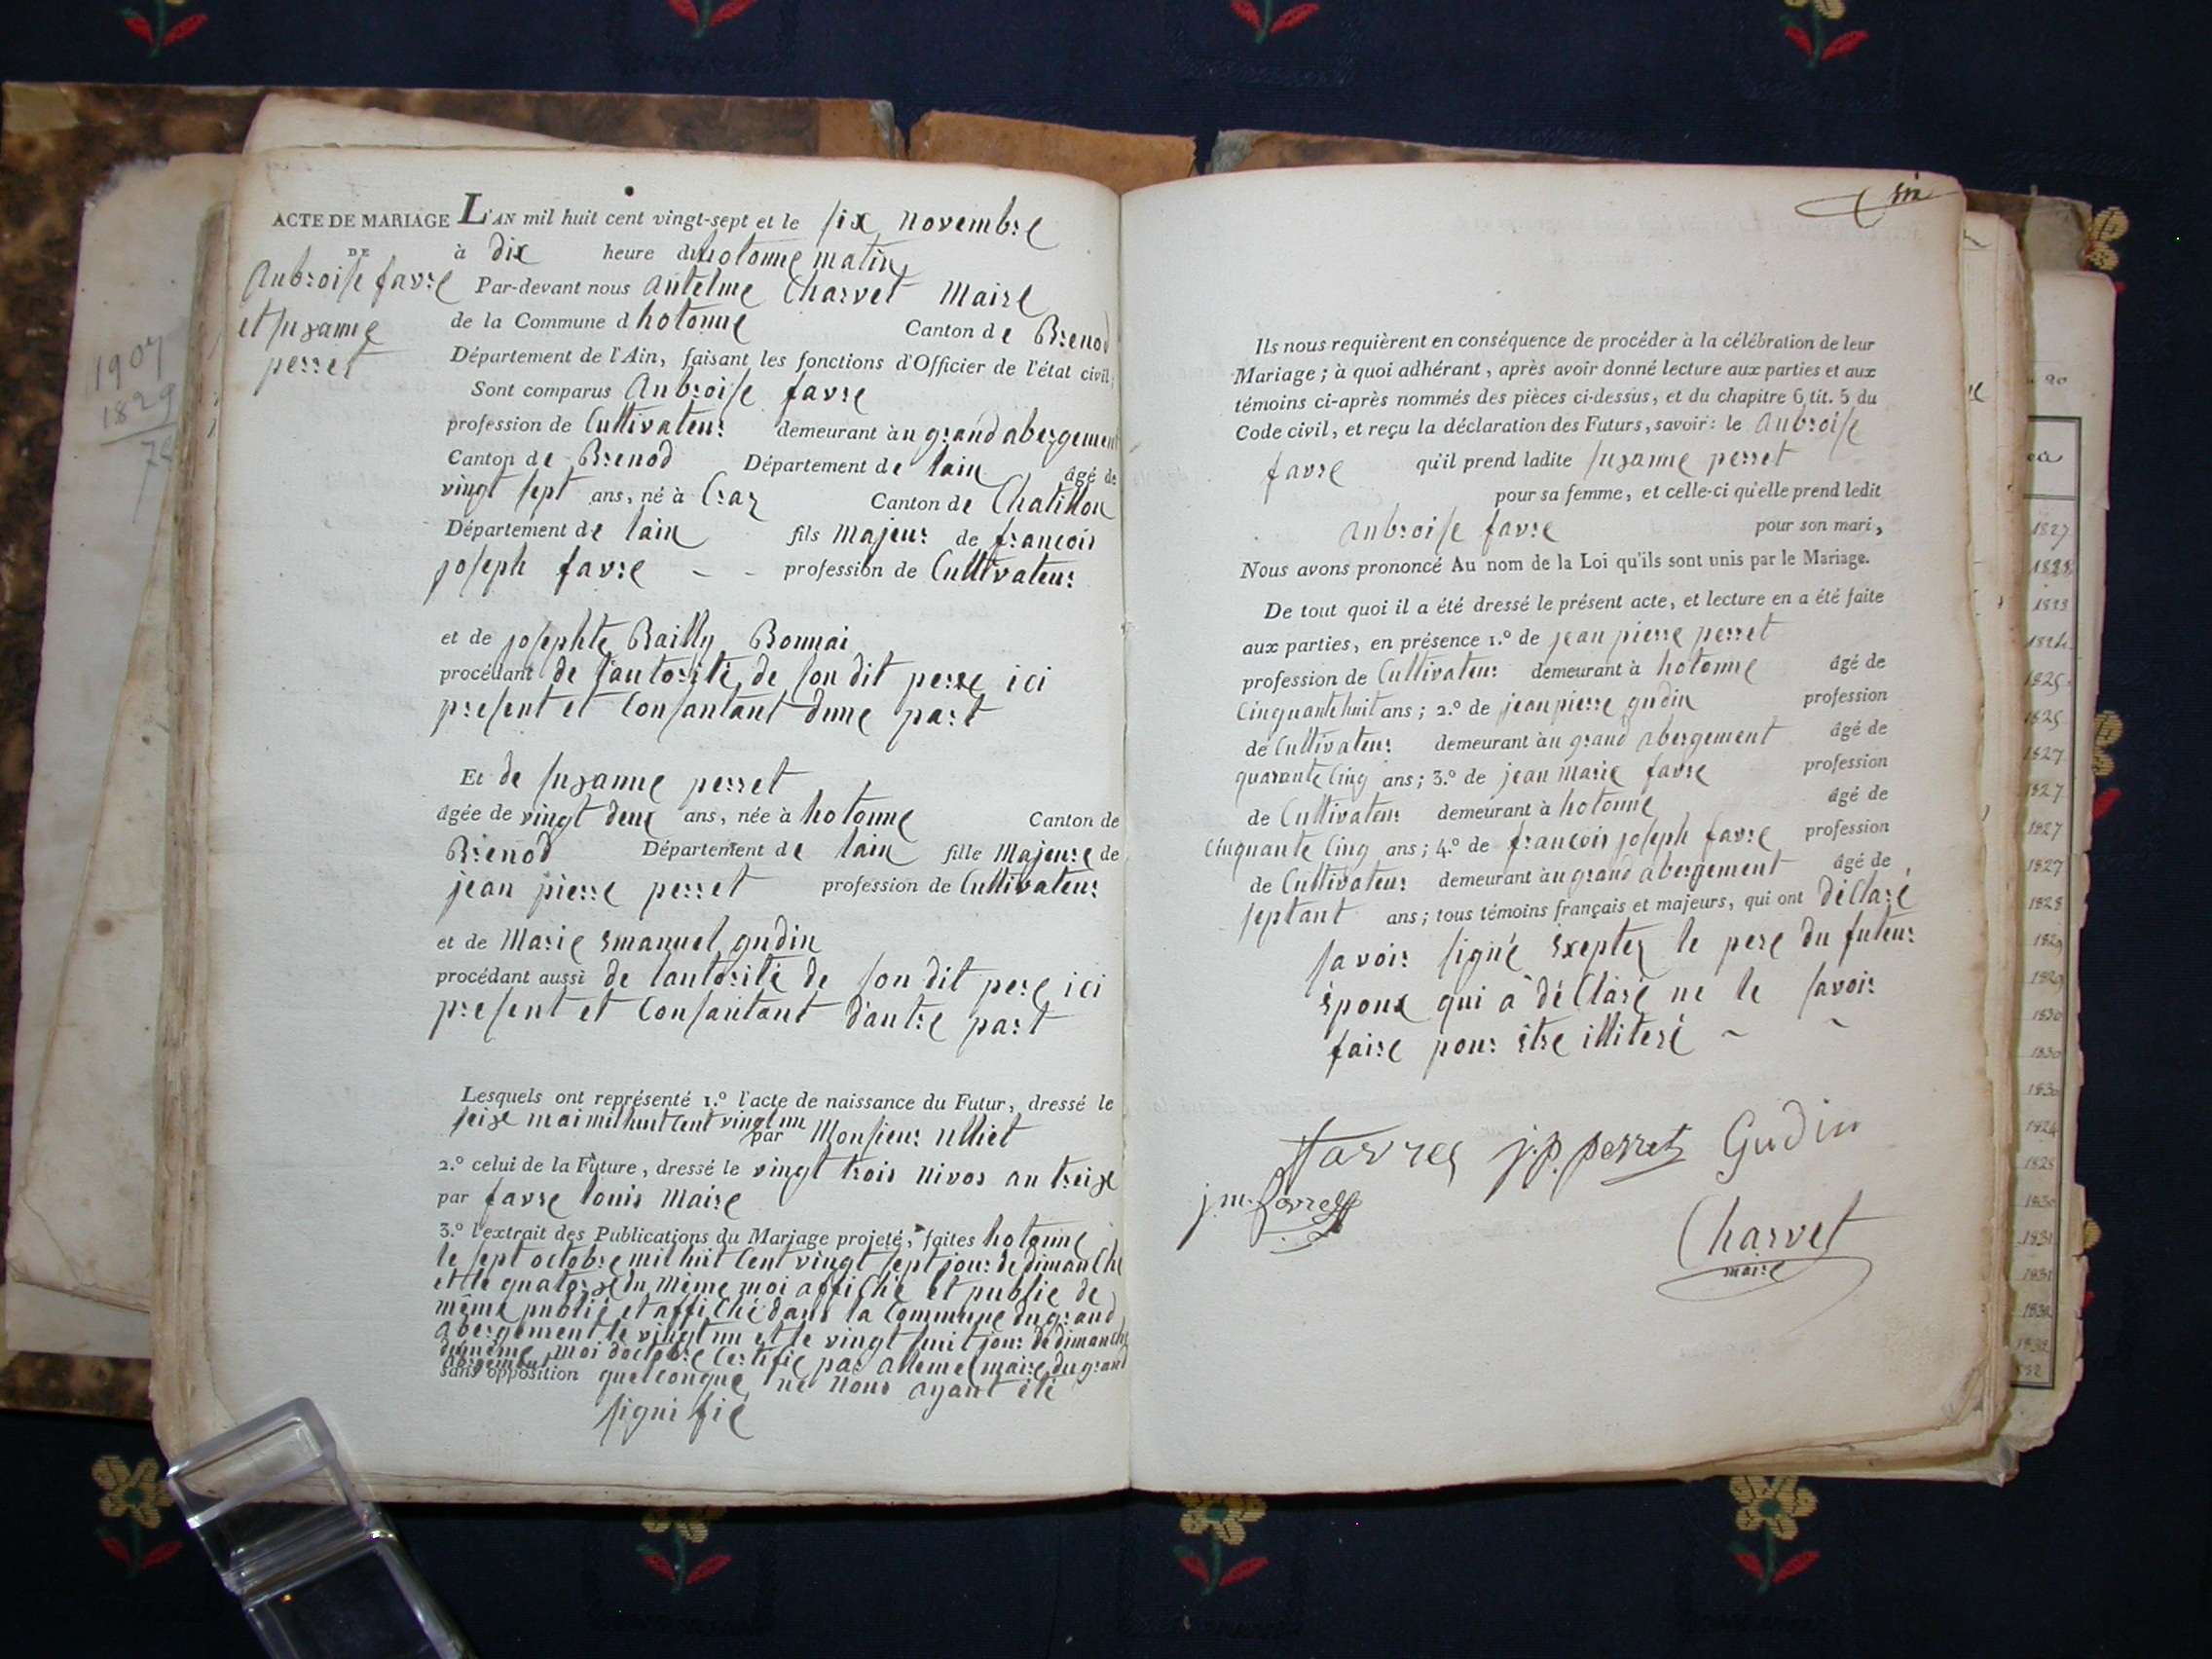 ACTE DE MARIAGE
DE
Anbroise favre
et susanne
perret
L'AN mil huit cent vingt-sept et le six novembre
à dix heure du hotonne matin
Par-devant nous antelme Charvet Maire
de la Commune d hotonne Canton de Brenod
Département de l'Ain, faisant les fonctions d'Officier de l'état civil;
Sont comparus Anbroise favre
profession de Cultivateur demeurant àu grand abergement
Canton de Brenod Département de lain âgé de
vingt sept ans, né à Craz Canton de Chatillon
Département de lain fils Majeur de francois
joseph favre - - profession de Cultivateur
et de josephte Bailly Bonnai
procédant de lautorite de son dit perre ici
present et Consantant dune part
Et de susanne perret
âgée de vingt deux ans, née à hotonne Canton de
Brenod Département de lain fille Majeure de
jean pierre perret profession de Cultivateur
et de Marie Emanuel gudin
procédant aussi de lautorité de son dit pere ici
present et Consantant dautre part
Lesquels ont représenté 1.º l'acte de naissance du Futur, dressé le
seise mai mil huit Cent vingt un par Monsieur ulliet
2.º celui de la Future, dressé le vingt trois nivos an treise
par favre louis Maire
3.º l'extrait des Publications du Mariage projeté, faites hotonne
le sept octobre mil huit Cent vingt sept jour de dimanche
et le quatorse du même moi affiché et publie de
même publié et affiché dans la Commune du grand
abergement le vingt un et le vingt huit jour de dimanche
du même moi doctobre Certifié par allemel maire du grand
abergement
sans opposition quelconque ne nous ayant été
signifié
1907
1829
Ils nous requièrent en conséquence de procéder à la célébration de leur
Mariage; à quoi adhérant, après avoir donné lecture aux parties et aux
témoins ci-après nommés des pièces ci-dessus, et du chapitre 6 tit. 5 du
Code civil, et reçu la déclaration des Futurs, savoir: le anbroise
favre qu'il prend ladite susanne perret
pour sa femme, et celle-ci qu'elle prend ledit
anbroise favre pour son mari,
Nous avons prononcé Au nom de la Loi qu'ils sont unis par le Mariage.
De tout quoi il a été dressé le présent acte, et lecture en a été faite
aux parties, en présence 1.º de jean pierre perret
profession de Cultivateur demeurant à hotonne âgé de
Cinquante huit ans; 2.º de jean pierre gudin profession
de Cultivateur demeurant àu grand abergement âgé de
quarante Cinq ans; 3.º de jean Marie favre profession
de Cultivateur demeurant à hotonne âgé de
Cinquante Cinq ans; 4.º de francois joseph favre profession
de Cultivateur demeurant àu grand abergement âgé de
septant ans; tous témoins français et majeurs, qui ont déClaré
savoir signé Exepter le pere du futeur
Epoux qui a déClaré ne le savoir
faire pour être illiteré
favre j.p. perret Gudin
j.m. favre
Charvet
maire
1827
1828
1825
1825
1827
1827
1827
1827
1828
1829
1829
1830
1830
1830
1824
1825
1830
1831
1831